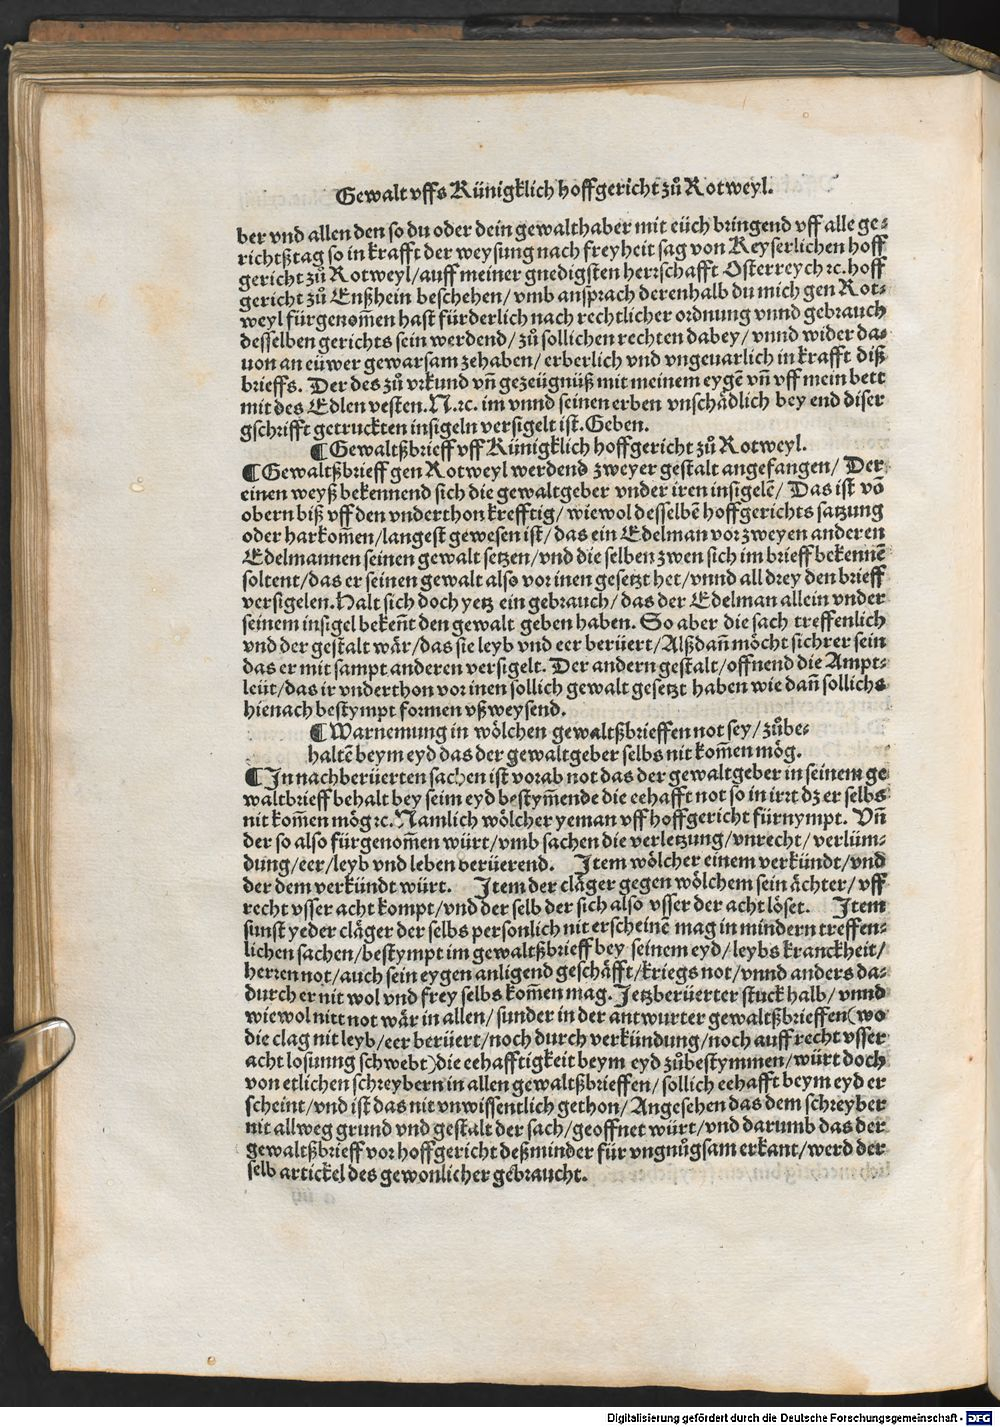 Gewalt vffs Künigklich hoffgericht zů Rotweyl.
ber vnd allen den so du oder dein gewalthaber mit eüch bringend vff alle ge⸗
richtßtag so in krafft der weysung nach freyheit sag von Keyserlichen hoff
gericht zů Rotweyl/auff meiner gnedigsten herrschafft Osterreych ꝛc. hoff
gericht zů Enßhein beschehen/vmb ansprach derenhalb du mich gen Rot⸗
weyl fürgenom̃en hast fürderlich nach rechtlicher ordnung vnnd gebrauch
desselben gerichts sein werdend/zů sollichen rechten dabey/vnnd wider da⸗
uon an eüwer gewarsam zehaben/erberlich vnd vngeuarlich in krafft diß
brieffs. Der des zů vrkund vñ gezeügnüß mit meinem eygẽ vñ vff mein bett
mit des Edlen vesten. N.ꝛc. im vnnd seinen erben vnschädlich bey end diser
gschrifft getruckten insigeln versigelt ist. Geben.
¶Gewaltßbrieff vff Künigklich hoffgericht zů Rotweyl.
¶Gewaltßbrieff gen Rotweyl werdend zweyer gestalt angefangen/Der
einen weyß bekennend sich die gewaltgeber vnder iren insigelẽ/Das ist võ
obern biß vff den vnderthon krefftig/wiewol desselbẽ hoffgerichts satzung
oder harkom̃en/langest gewesen ist/das ein Edelman vor zweyen anderen
Edelmannen seinen gewalt setzen/vnd die selben zwen sich im brieff bekennẽ
soltent/das er seinen gewalt also vor inen gesetzt het/vnnd all drey den brieff
versigelen. Halt sich doch yetz ein gebrauch/das der Edelman allein vnder
seinem insigel bekeñt den gewalt geben haben. So aber die sach treffenlich
vnd der gestalt wär/das sie leyb vnd eer berüert/Alßdañ möcht sichrer sein
das er mit sampt anderen versigelt. Der andern gestalt/offnend die Ampt⸗
leüt/das ir vnderthon vor inen sollich gewalt gesetzt haben wie dañ sollichs
hienach bestympt formen vßweysend.
¶Warnemung in wölchen gewaltßbrieffen not sey/zůbe⸗
haltẽ beym eyd das der gewaltgeber selbs nit kom̃en mög.
¶In nachberüerten sachen ist vorab not das der gewaltgeber in seinem ge
waltbrieff behalt bey seim eyd bestym̃ende die eehafft not so in irrt dz er selbs
nit kom̃en mög ꝛc. Namlich wölcher yeman vff hoffgericht fürnympt. Vñ
der so also fürgenom̃en würt/vmb sachen die verletzung/vnrecht/verlüm⸗
dung/eer/leyb vnd leben berüerend. Item wölcher einem verkündt/vnd
der dem verkündt würt. Item der cläger gegen wölchem sein ächter/vff
recht vsser acht kompt/vnd der selb der sich also vsser der acht löset. Item
sunst yeder cläger der selbs personlich nit erscheinẽ mag in mindern treffen⸗
lichen sachen/bestympt im gewaltßbrieff bey seinem eyd/leybs kranckheit/
herren not/auch sein eygen anligend geschäfft/kriegs not/vnnd anders da⸗
durch er nit wol vnd frey selbs kom̃en mag. Jetzberüerter stuck halb/vnnd
wiewol nitt not wär in allen/sunder in der antwurter gewaltßbrieffen(wo
die clag nit leyb/eer berüert/noch durch verkündung/noch auff recht vsser
acht losunng schwebt)die eehafftigkeit beym eyd zůbestymmen/würt doch
von etlichen schreybern in allen gewaltßbrieffen/sollich eehafft beym eyd er
scheint/vnd ist das nit vnwissentlich gethon/Angesehen das dem schreyber
nit allweg grund vnd gestalt der sach/geoffnet würt/vnd darumb das der
gewaltßbrieff vor hoffgericht deßminder für vngnůgsam erkant/werd der
selb artickel des gewonlicher gebraucht.
Digitalisierung gefördert durch die Deutsche Forschungsgemeinschaft - DFG